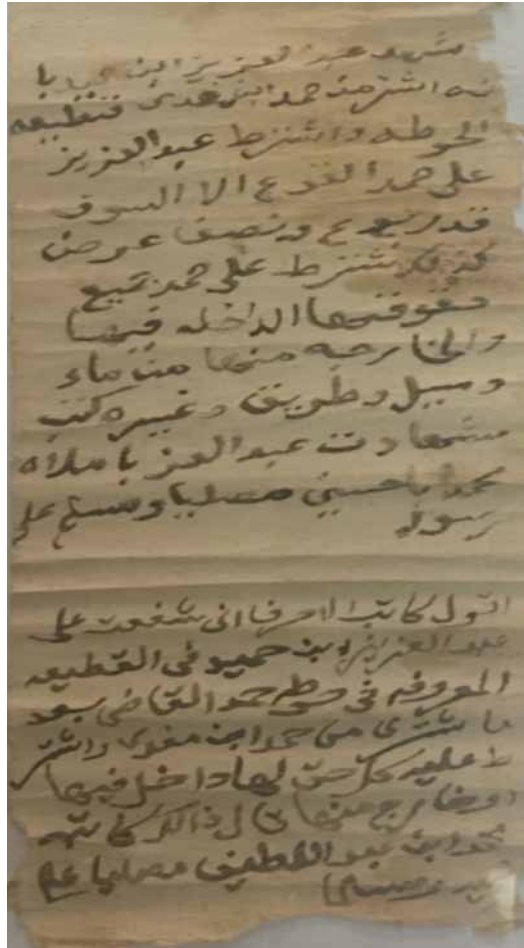 شهد عبد العزيز ابن با
نه اشتر من حمد ابن قطيعه
الحوطه واشترط عبد العزيز
على حمد الا السوق
قدر ربوع ونصف عرض
شترط على حمد جميع
حقوقها الداخله فيها
والخارجه منها من ماء
وسبيل وطريق وغيره كتب
شهادت عبد العز باملاه
حسين مصليا ومسلم على
رسوله
اقول كاتب الاحرف اني شفعت على
عبد العزيز ابن حميد في القطيعه
المعروفه في حوطة حمد القاضي بعد
ما شترى من حمد ابن واشتر
ط عليه كل حق لها داخل فيها
او خارج منها قال ذالك كاتبه
ابن عبد اللطيف مصليا على
ومسلم